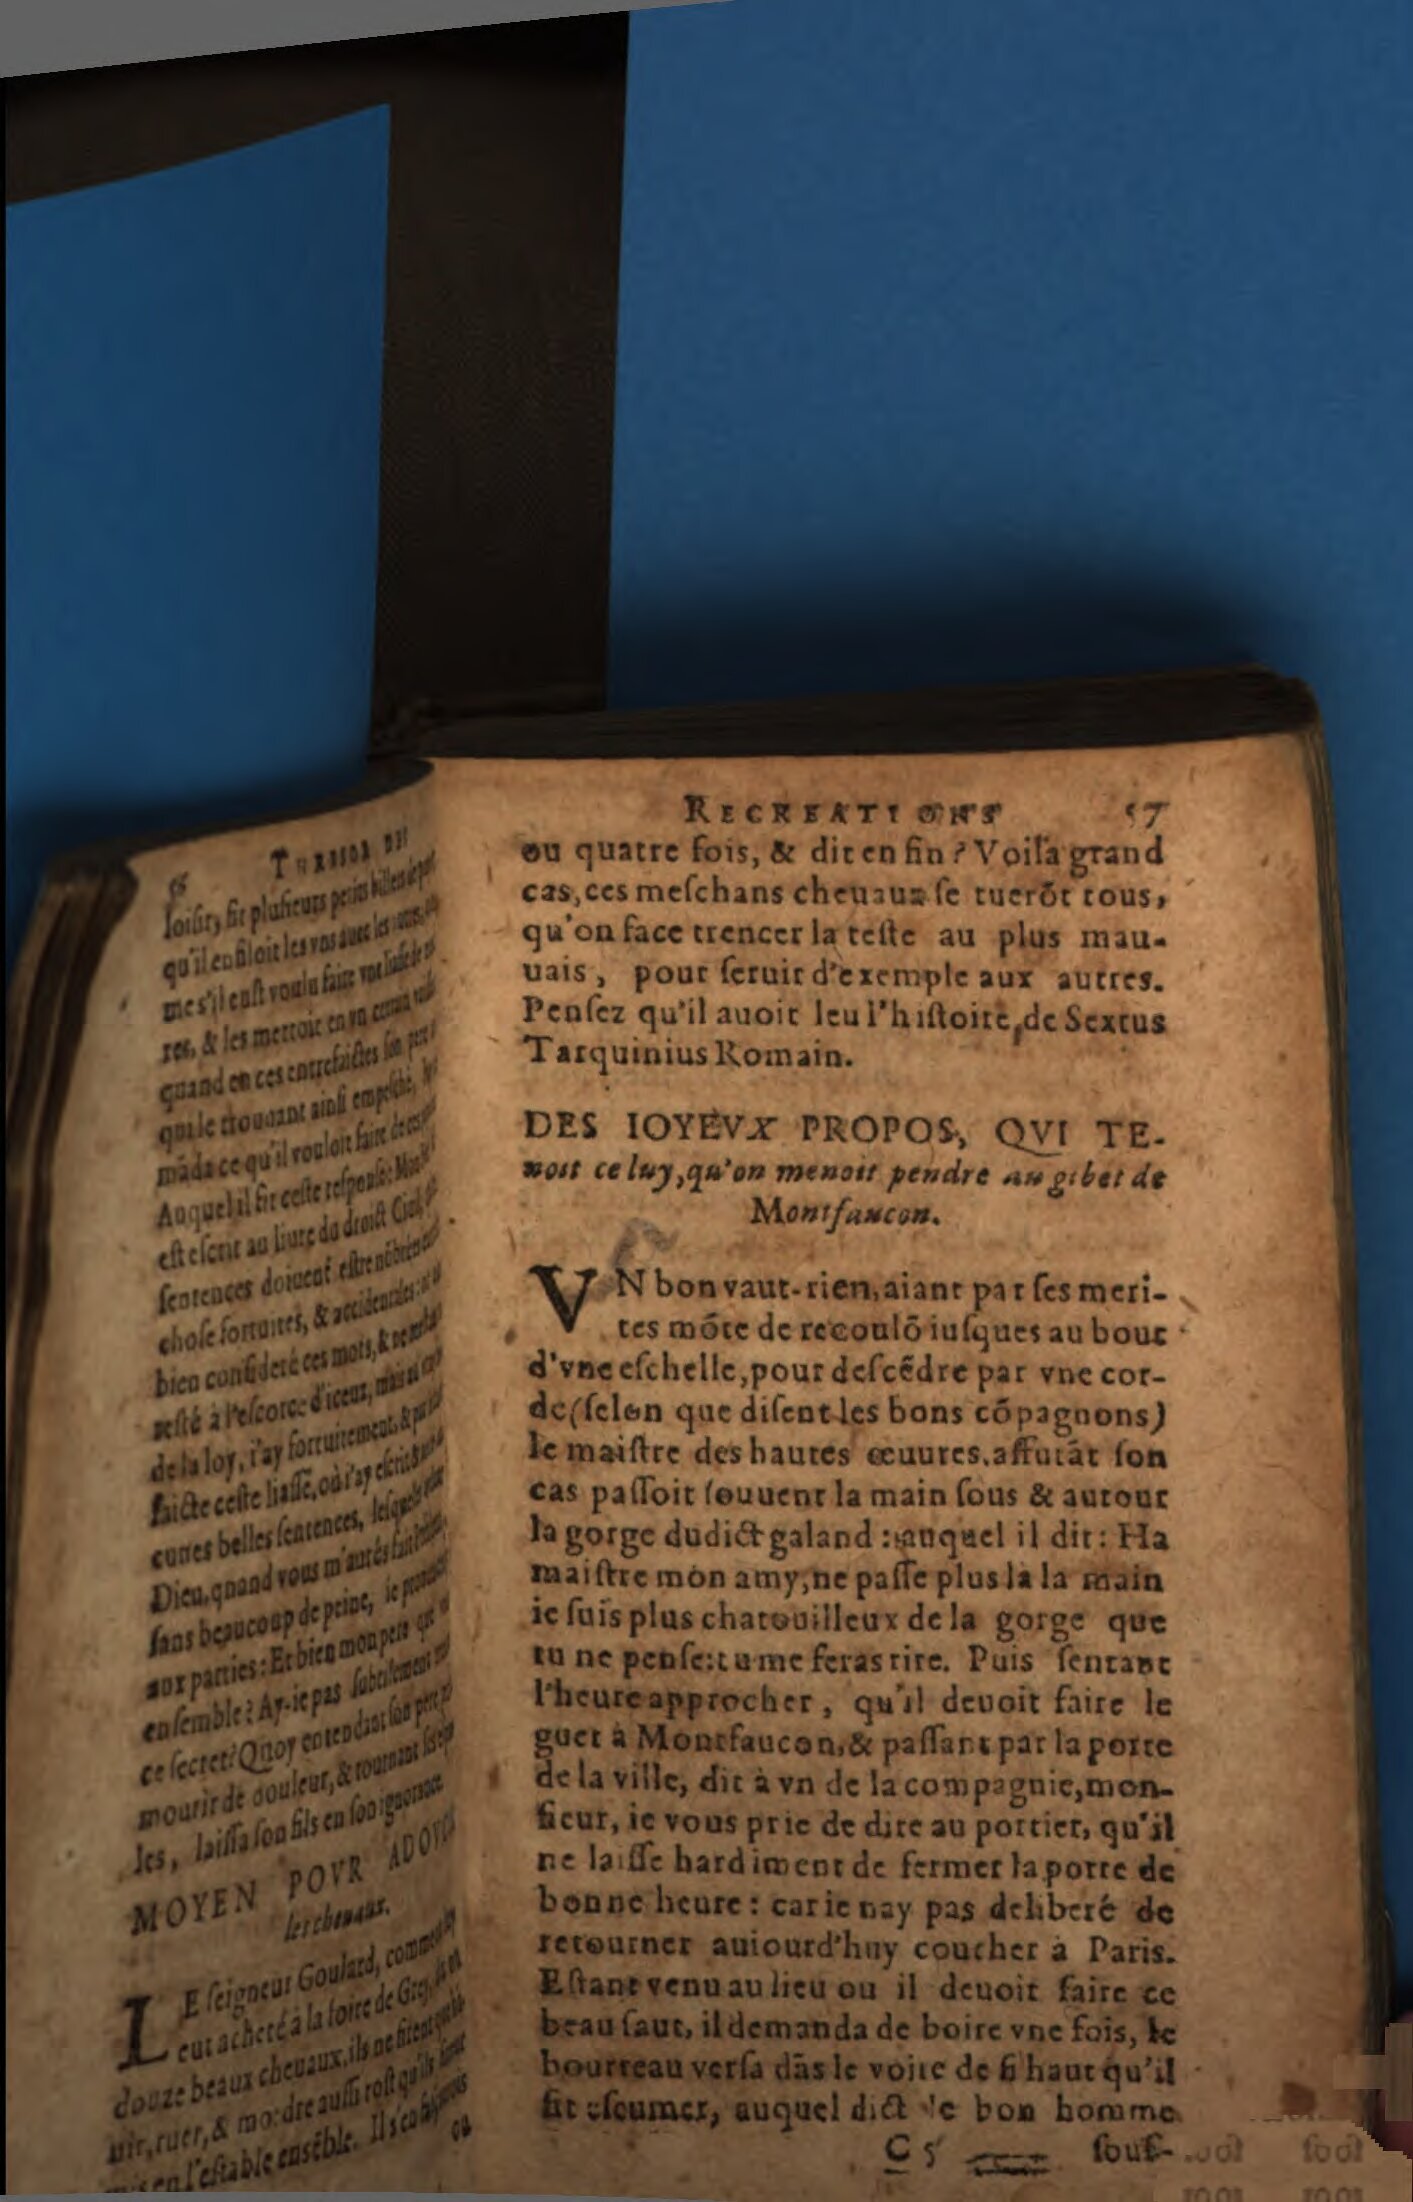 56 THRESOR DES
loisir, fit plusieurs petits billets de
qu'il enfiloit les vns auec les
me s'il eust voulu faire vne liasse de
res, & les mettoit en vn
quand en ces entrefaictes son pere
qui le trouuant ainsi empesché, luy
mãda ce qu'il vouloit faire de
Auquel il fit ceste response: Mon
est escrit au liure du droict Ciuil,
sentences doiuent estre
chose fortuites, & accidentales:
bien consideré ces mots, &
resté à l'escorce d'iceux, mais
de la loy, i'ay fortuitement, &
faicte ceste liasse, où i'ay escrit
cunes belles sentences, lesquelles
Dieu, quand vous m'aurés fait
sans beaucoup de peine, ie
aux parties: Et bien mon pere que
ensemble? Ay-ie pas subtilement
ce secret? Quoy entendant son pere
mourir de douleur, & tournant
les, laissa son fils en son ignorance
MOYEN POVR ADOVCI
les cheuaux.
LE seigneur Goulard, comme
eut acheté à la foire de Grey,
douze beaux cheuaux, ils ne
nir, ruer, & mordre aussi tost qu'ils
mis en l'estable ensẽble. Il s'en
RECREATIONS 57
ou quatre fois, & dit en fin? Voila grand
cas, ces meschans cheuaux se tuerõt tous,
qu'on face trencer la teste au plus mau-
uais, pour seruir d'exemple aux autres.
Pensez qu'il auoit leu l'histoire, de Sextus
Tarquinius Romain.
DES IOYEVX PROPOS, QVI TE-
noit celuy, qu'on menoit pendre au gibet de
Montfaucon.
VN bon vaut-rien, aiant par ses meri-
tes mõte de recoulõ iusques au bout
d'vne eschelle, pour descẽdre par vne cor-
de (selon que disent les bons cõpagnons)
le maistre des hautes œuures. affutãt son
cas passoit souuent la main sous & autour
la gorge dudict galand: auquel il dit: Ha
maistre mon amy, ne passe plus là la main
ie suis plus chatouilleux de la gorge que
tu ne pense: tu me feras rire. Puis sentant
l'heure approcher, qu'il deuoit faire le
guet à Montfaucon, & passant par la porte
de la ville, dit à vn de la compagnie, mon-
sieur, ie vous prie de dire au portier, qu'il
ne laisse hardiment de fermer la porte de
bonne heure: car ie nay pas deliberé de
retourner auiourd'huy coucher à Paris.
Estant venu au lieu ou il deuoit faire ce
beau saut, il demanda de boire vne fois, le
bourreau versa dãs le voire de si haut qu'il
fit escumer, auquel dict le bon homme
C 5 souf-